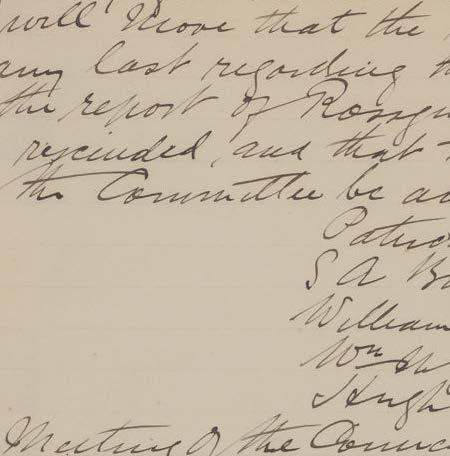 will move that the
any last regarding
the report of
rescinded, and that
the Committee be
S A
William
Wm
Hugh
Meeting of the